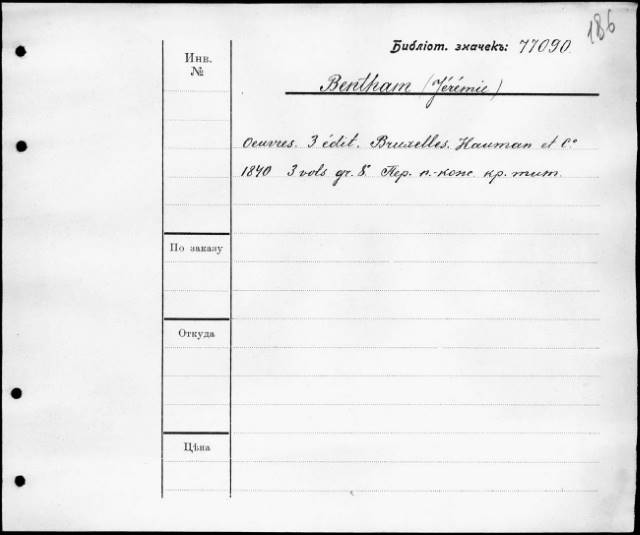 186
Библіот. значекъ: 77090
Инв.
№
Bentham (Jérémie)
Oeuvres. 3 édit. Bruxelles. Hauman et Cº
1840 3 vols gr. 8º Пер. п.-кож. кр. тит.
По заказу
Откуда
Цѣна